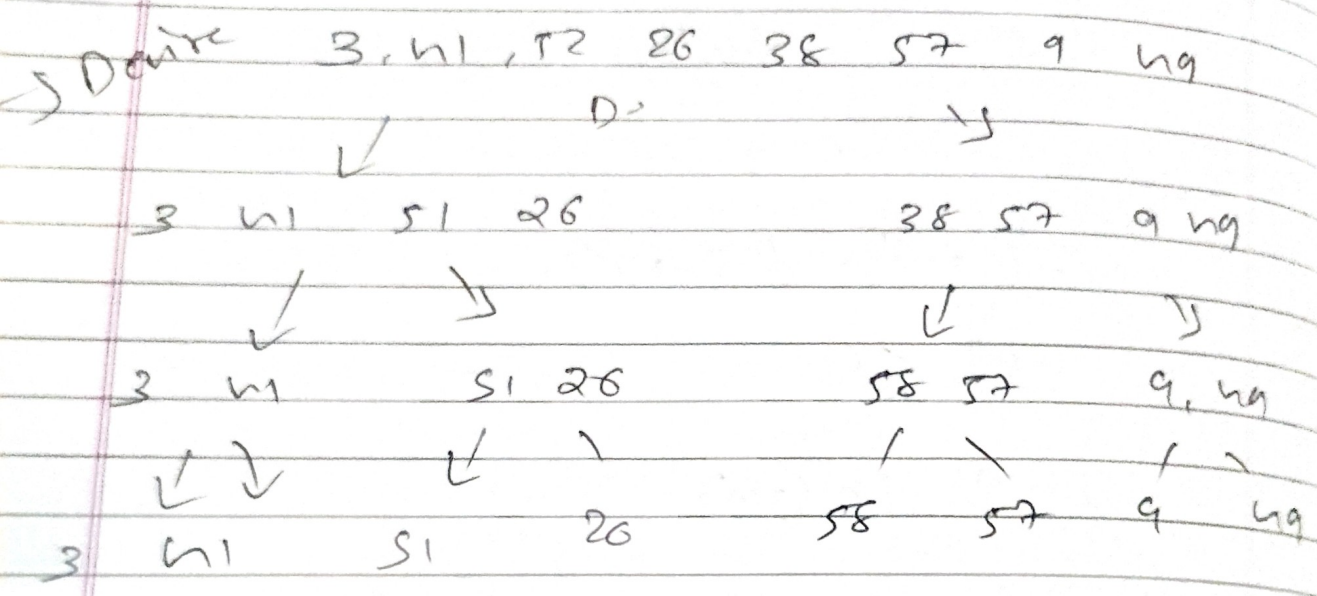 Devire 3, 41, 52 26 38 57 9 49
D:
3 41 51 26 38 57 9 49
3 41 51 26 58 57 9, 49
3 41 51 26 58 57 9 49